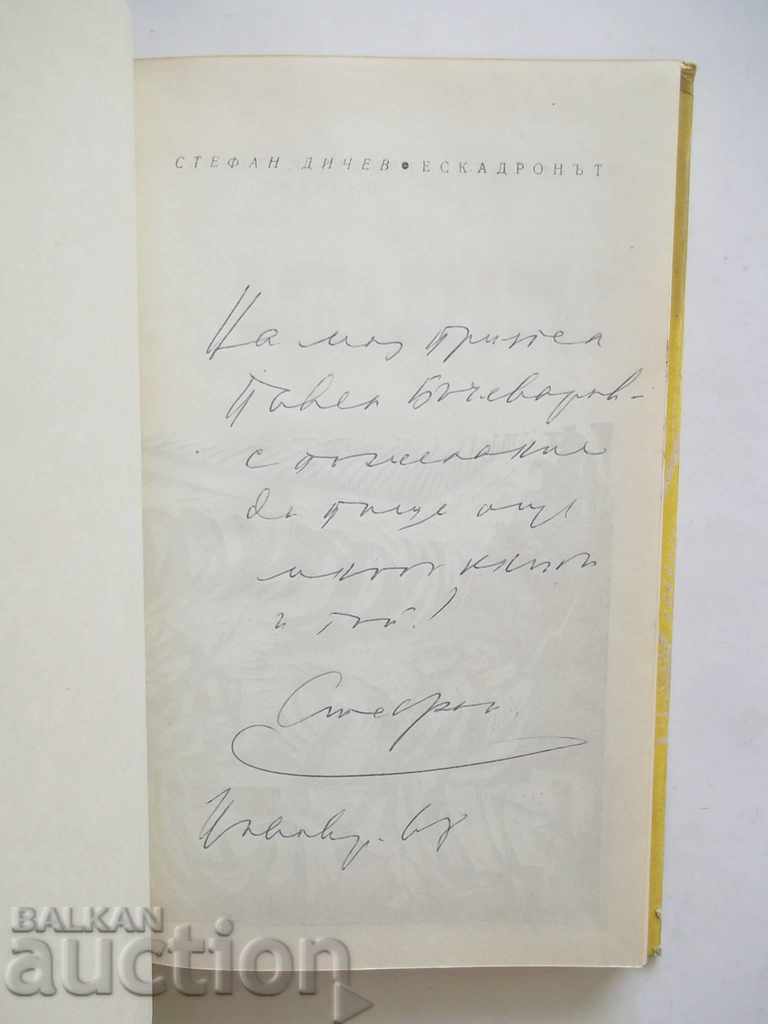 СТЕФАН ДИЧЕВ • ЕСКАДРОНЪТ
На моя приятел
Павел Бъчеваров –
с пожелание
да пише още
много книги
и той!
Стефан
68
BALKAN
auction